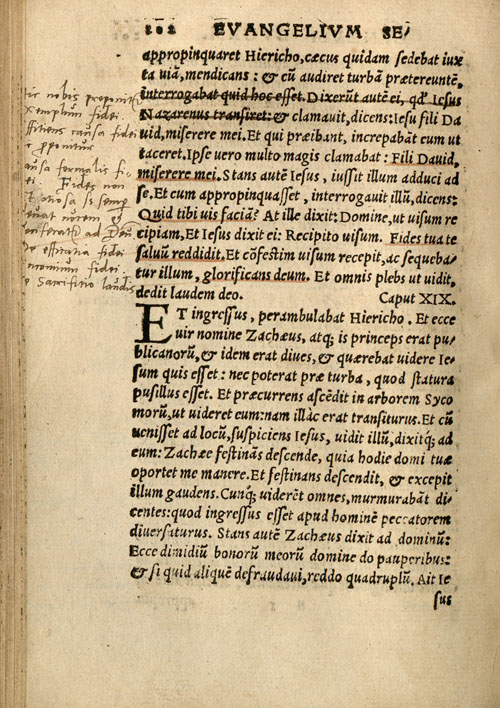 202 EVANGELIVM SE/
appropinquaret Hiericho, cæcus quidam sedebat iux
ta uiã, mendicans: & cũ audiret turbã prætereuntẽ,
interrogabat quid hoc esset. Dixerũt autẽ ei, qđ Iesus
Nazarenus transiret: & clamauit, dicens: Iesu fili Da
uid, miserere mei. Et qui præibant, increpabãt eum ut
taceret. Ipse uero multo magis clamabat: Fili Dauid,
miserere mei. Stans autẽ Iesus, iussit illum adduci ad
se. Et cum appropinquasset, interrogauit illũ, dicens:
Quid tibi uis faciã? At ille dixit: Domine, ut uisum re
cipiam, Et Iesus dixit ei: Recipito uisum. Fides tua te
saluũ reddidit. Et cõfestim uisum recepit, ac sequeba/
tur illum, glorificans deum. Et omnis plebs ut uidit,
dedit laudem deo. Caput XIX.
ET ingressus, perambulabat Hiericho. Et ecce
uir nomine Zachæus, atq; is princeps erat pu/
blicanorũ, & idem erat diues, & quærebat uidere Ie/
sum quis esset: nec poterat præ turba, quod statura
pusillus esset. Et præcurrens ascẽdit in arborem Syco
morũ, ut uideret eum: nam illàc erat transiturus. Et cũ
uenisset ad locũ, suspiciens Iesus, uidit illũ, dixitq; ad
eum: Zachæe festinãs descende, quia hodie domi tuæ
oportet me manere. Et festinans descendit, & excepit
illum gaudens. Cunq; uiderẽt omnes, murmurabãt di/
centes: quod ingressus esset apud hominẽ peccatorem
diuersaturus. Stans autẽ Zachæus dixit ad dominũ:
Ecce dimidiũ bonorũ meorũ domine do pauperibus:
& si quid aliquẽ defraudaui, reddo quadruplũ. Ait Ie/
sus
nobis proponit
exemplum fidei
causa fidei
causa formalis fi
Fides non
fidei
laudis